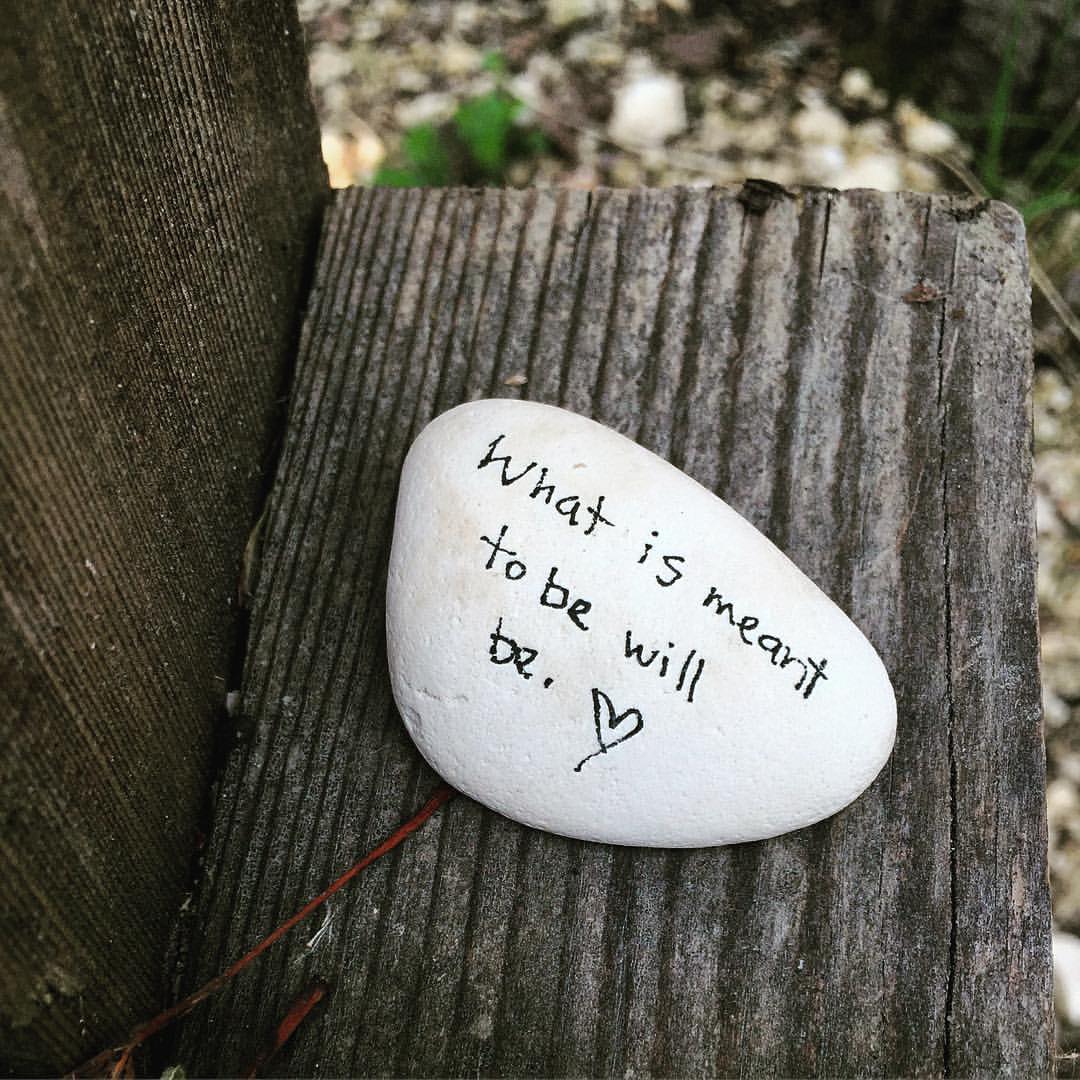 What is meant
to be will
be. ♡